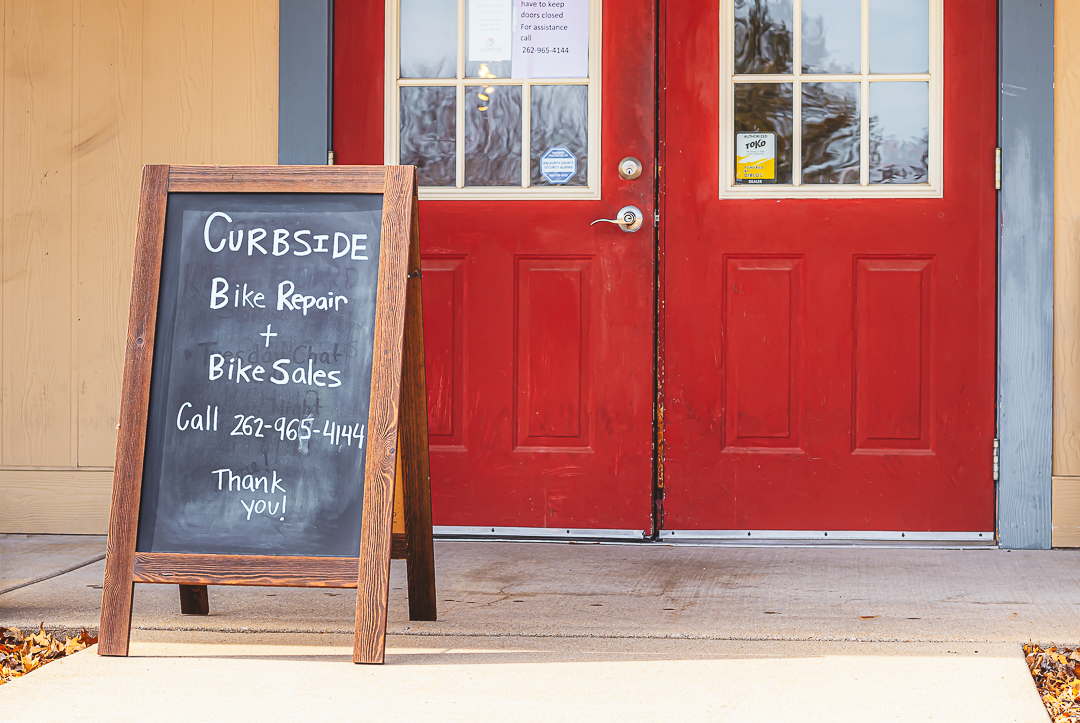 CURBSIDE
Bike Repair
+
Bike Sales
Call 262-965-4144
Thank
you!
have to keep
doors closed
For assistance
call
262-965-4144
AUTHORIZED
TOKO
DEALER